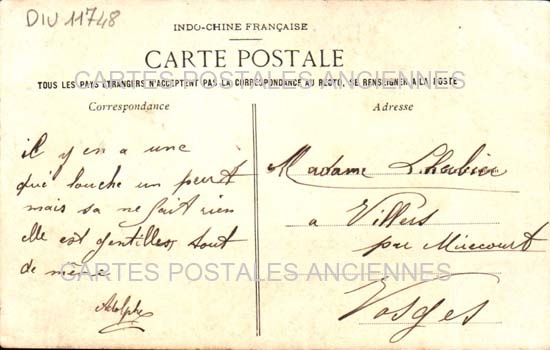 DIV 11748
INDO-CHINE FRANÇAISE
CARTE POSTALE
TOUS LES PAYS ETRANGERS N'ACCEPTENT PAS LA CORRESPONDANCE AU RECTO, SE RENSEIGNER A LA POSTE
CARTES POSTALES ANCIENNES
Correspondance
il y en a une
qui louche un peut
mais sa ne fait rien
elle est gentilles tout
de même
Adolphe
Adresse
Madame
a Villers
par Mirecourt
Vosges
CARTES POSTALES ANCIENNES